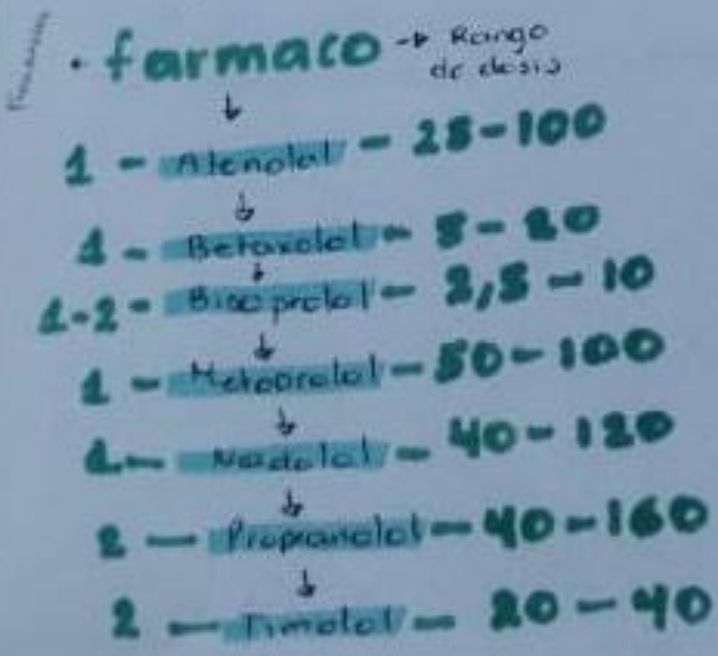 • farmaco → Rango
de dosis
1 - Atenolol - 25-100
1 - Betaxolol - 5-20
1-2 - Bisoprolol - 2,5-10
1 - Metoprolol - 50-100
1 - Nadolol - 40-120
2 - Propranolol - 40-160
2 - Timolol - 20-40